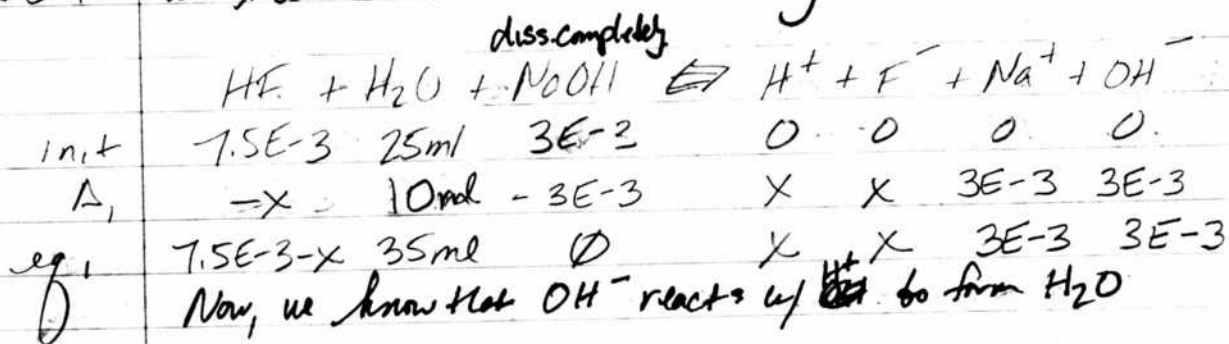 diss. completely
HF + H₂O + NaOH ⇌ H⁺ + F⁻ + Na⁺ + OH⁻
init 7.5E-3 25ml 3E-3 0 0 0 0
Δ₁ -x 10ml -3E-3 x x 3E-3 3E-3
eq₁ 7.5E-3-x 35ml ∅ x x 3E-3 3E-3
Now, we know that OH⁻ reacts w/ H⁺ to form H₂O